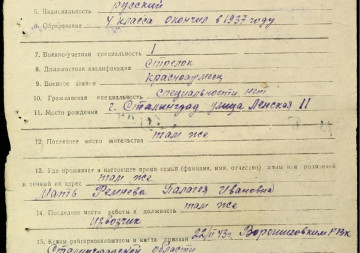 5. Национальность русский
6. Образование 4 класса окончил в 1937 году
7. Военно-учетная специальность 1
8. Должностная квалификация стрелок
9. Военное звание красноармеец
10. Гражданская специальность специальности нет
11. Место рождения г. Сталинград улица Ленская 11
12. Последнее место жительства там же
13. Где проживает в настоящее время семья (фамилия, имя, отчество) жены или родителей
и точный их адрес там же
мать Ремнева Палагея Ивановна
14. Последнее место работы и должность
извозчик
15. Каким райгорвоенкоматом и когда призван 22/II 43г. Ворошиловким РВК
Сталинградской области